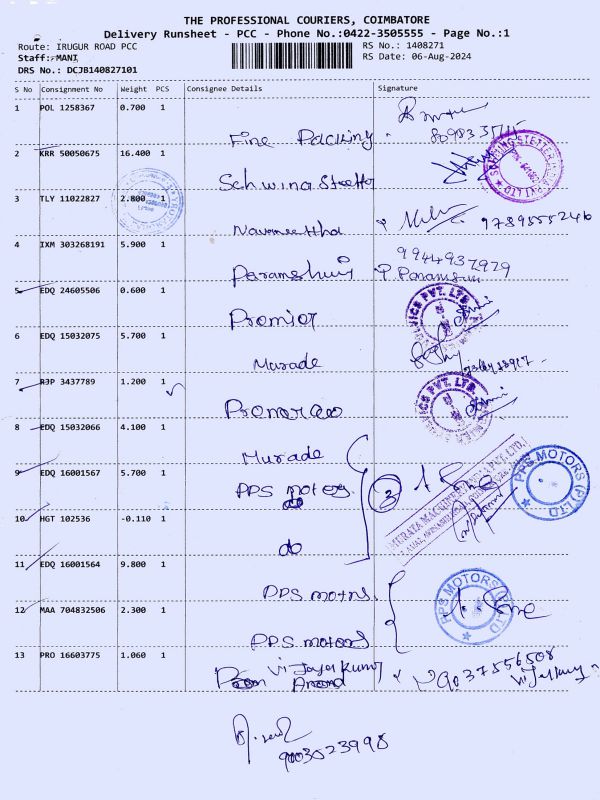 THE PROFESSIONAL COURIERS, COIMBATORE
Delivery Runsheet - PCC - Phone No.:0422-3505555 - Page No.:1
Route: IRUGUR ROAD PCC
Staff: MANI
DRS No.: DCJB140827101
RS No.: 1408271
RS Date: 06-Aug-2024
S No Consignment No Weight PCS Consignee Details Signature
1 POL 1258367 0.700 1
Fine Packing
2 KRR 50050675 16.400 1
Schwing Stetter
3 TLY 11022827 2.800 1
9789555246
4 IXM 303268191 5.900 1
9944937979
5 EDQ 24605506 0.600 1
Premier
PVT. LTD
6 EDQ 15032075 5.700 1
Murade
7 RJP 3437789 1.200 1
PVT. LTD.
8 EDQ 15032066 4.100 1
Murade
9 EDQ 16001567 5.700 1
PPS motors
do
3
PPS MOTORS (P) LTD
10 HGT 102536 -0.110 1
do
11 EDQ 16001564 9.800 1
PPS motors
PPS MOTORS (P) LTD
12 MAA 704832506 2.300 1
PPS motors
13 PRO 16603775 1.060 1
Vijayakumar
Anand
9037556508
9003023998